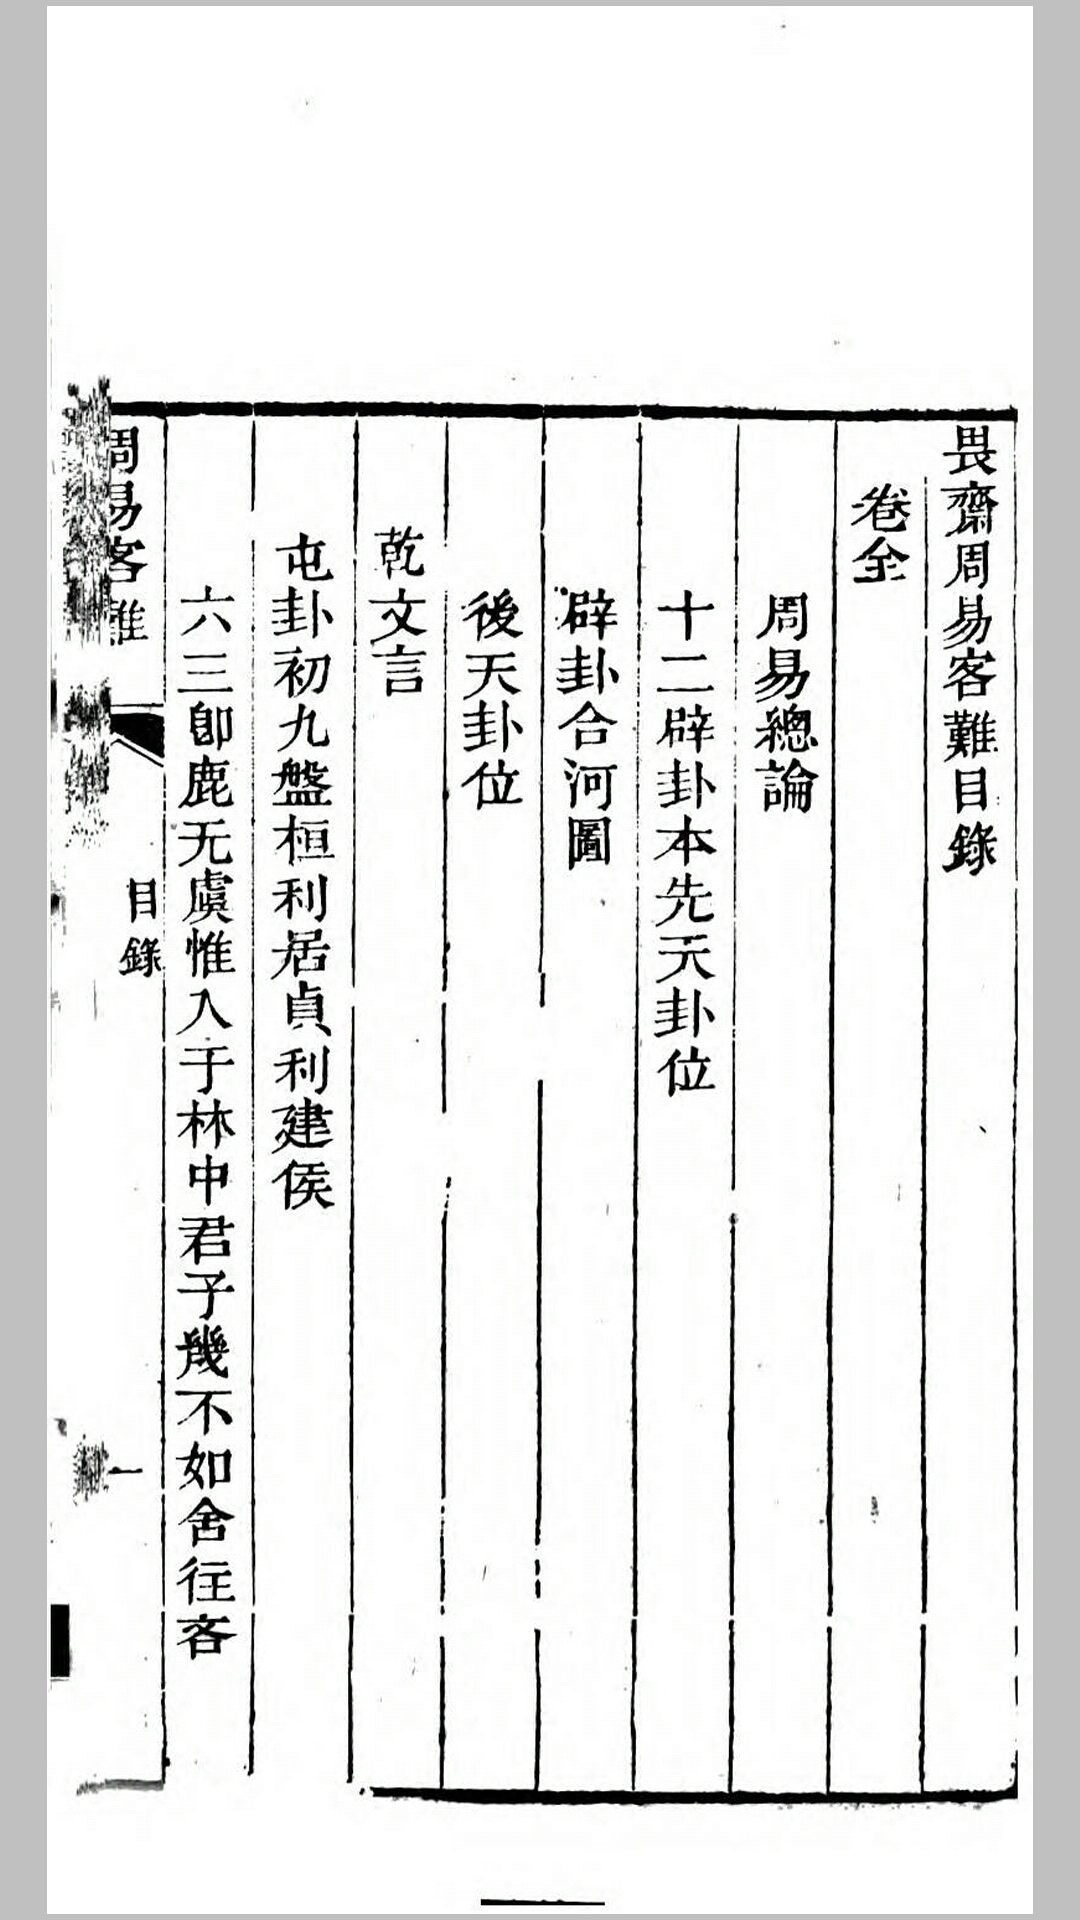 畏齋周易客難目錄
卷全
周易總論
十二辟卦本先天卦位
辟卦合河圖
後天卦位
乾文言
屯卦初九盤桓利居貞利建侯
六三即鹿无虞惟入于林中君子幾不如舍往吝
周易客難
目錄
一